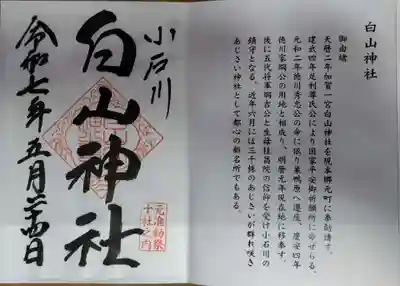 白山神社
御由緒
天暦二年加賀一宮白山神社を現本郷元町に奉勧請す。
建武四年足利尊氏公により国家平安御祈願所に命ぜらる。
元和二年徳川秀忠公の命に依り巣鴨原へ遷座、慶安四年
徳川家綱公の用地と相成り、明暦元年現在地に移奉す。
後に五代将軍綱吉公と生母桂昌院の信仰を受け小石川の
鎮守となる。近年六月には三千株のあじさいが群れ咲き
あじさい神社として都心の新名所でもある。
小石川
白山神社
元准勅祭
十社之内
令和七年五月二十四日